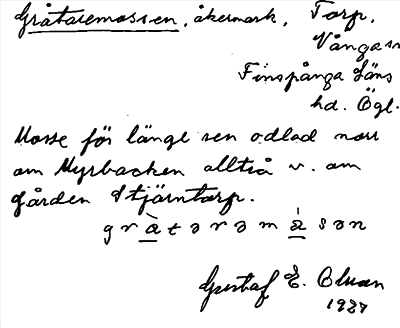 Gråtaremossen, åkermark, Torp,
Vånga sn
Finspånga Läns
hd. Ögl.
Mosse för länge sen odlad norr
om Myrbacken alltså v. om
gården Stjärntorp.
g r à t ə r ə m à s ə n
Gustaf E.
1937